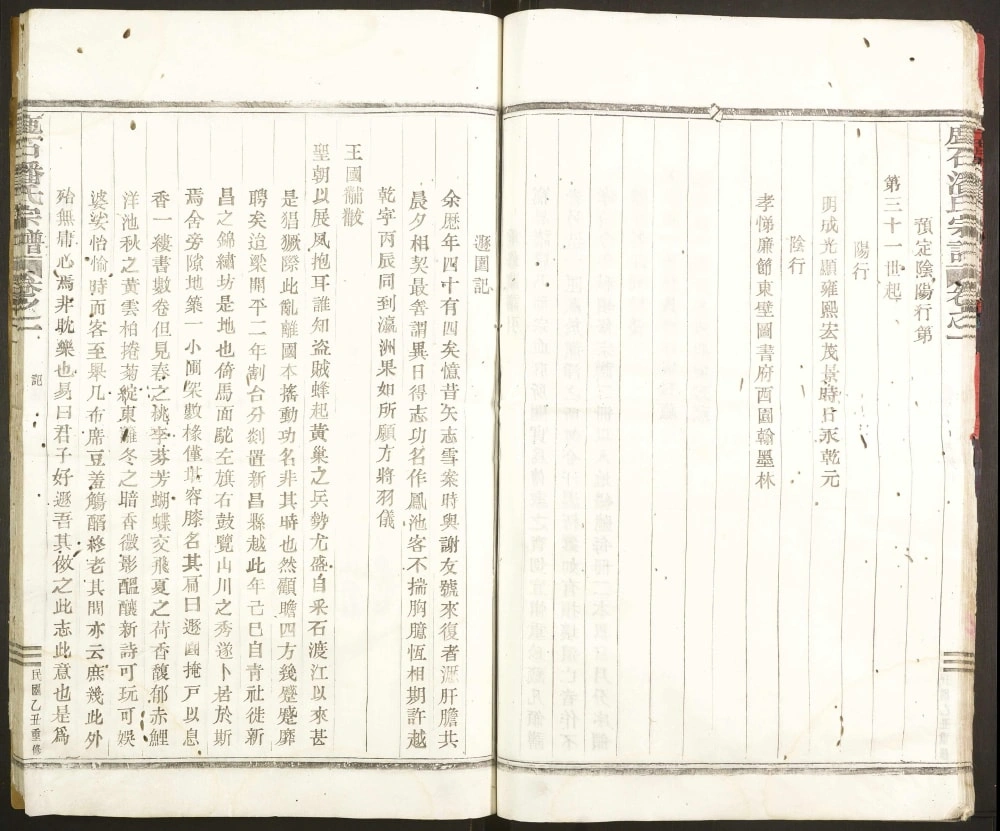 鹿石潘氏宗譜 卷之一
預定陰陽行第
第三十一世起
陽行
明成光顯雍熙宏茂景時日永乾元
陰行
孝悌廉節東壁圖書府西園翰墨林
遯園記
余歷年四十有四矣憶昔矢志雪案時與謝友號來復者瀝肝膽共
晨夕相契最善謂異日得志功名作鳳池客不揣胸臆恆相期許越
乾寧丙辰同到瀛洲果如所願方將羽儀
王國黼黻
聖朝以展風抱耳誰知盜賊蜂起黃巢之兵勢尤盛自采石渡江以來甚
是猖獗際此亂離國本搖動功名非其時也然顧瞻四方蹙蹙靡
聘矣迨梁開平二年割台分剡置新昌縣越此年己巳自青社徙新
昌之錦繡坊是地也倚馬面駝左旗右鼓覽山川之秀遂卜居於斯
焉舍旁隙地築一小圃架數椽僅堪容膝名其扁曰遯園掩戸以息
香一縷書數卷但見春之桃李芬芳蝴蝶交飛夏之荷香馥郁赤鯉
洋池秋之黃雲柏捲菊綻東籬冬之暗香微影醞釀新詩可玩可娛
婆娑怡愉時而客至舉几布席豆羞觴酳終老其間亦云庶幾此外
殆無庸心焉非耽樂也易曰君子好遯吾其倣之此志此意也是爲
鹿石潘氏宗譜 卷之一
記
民國乙丑重修